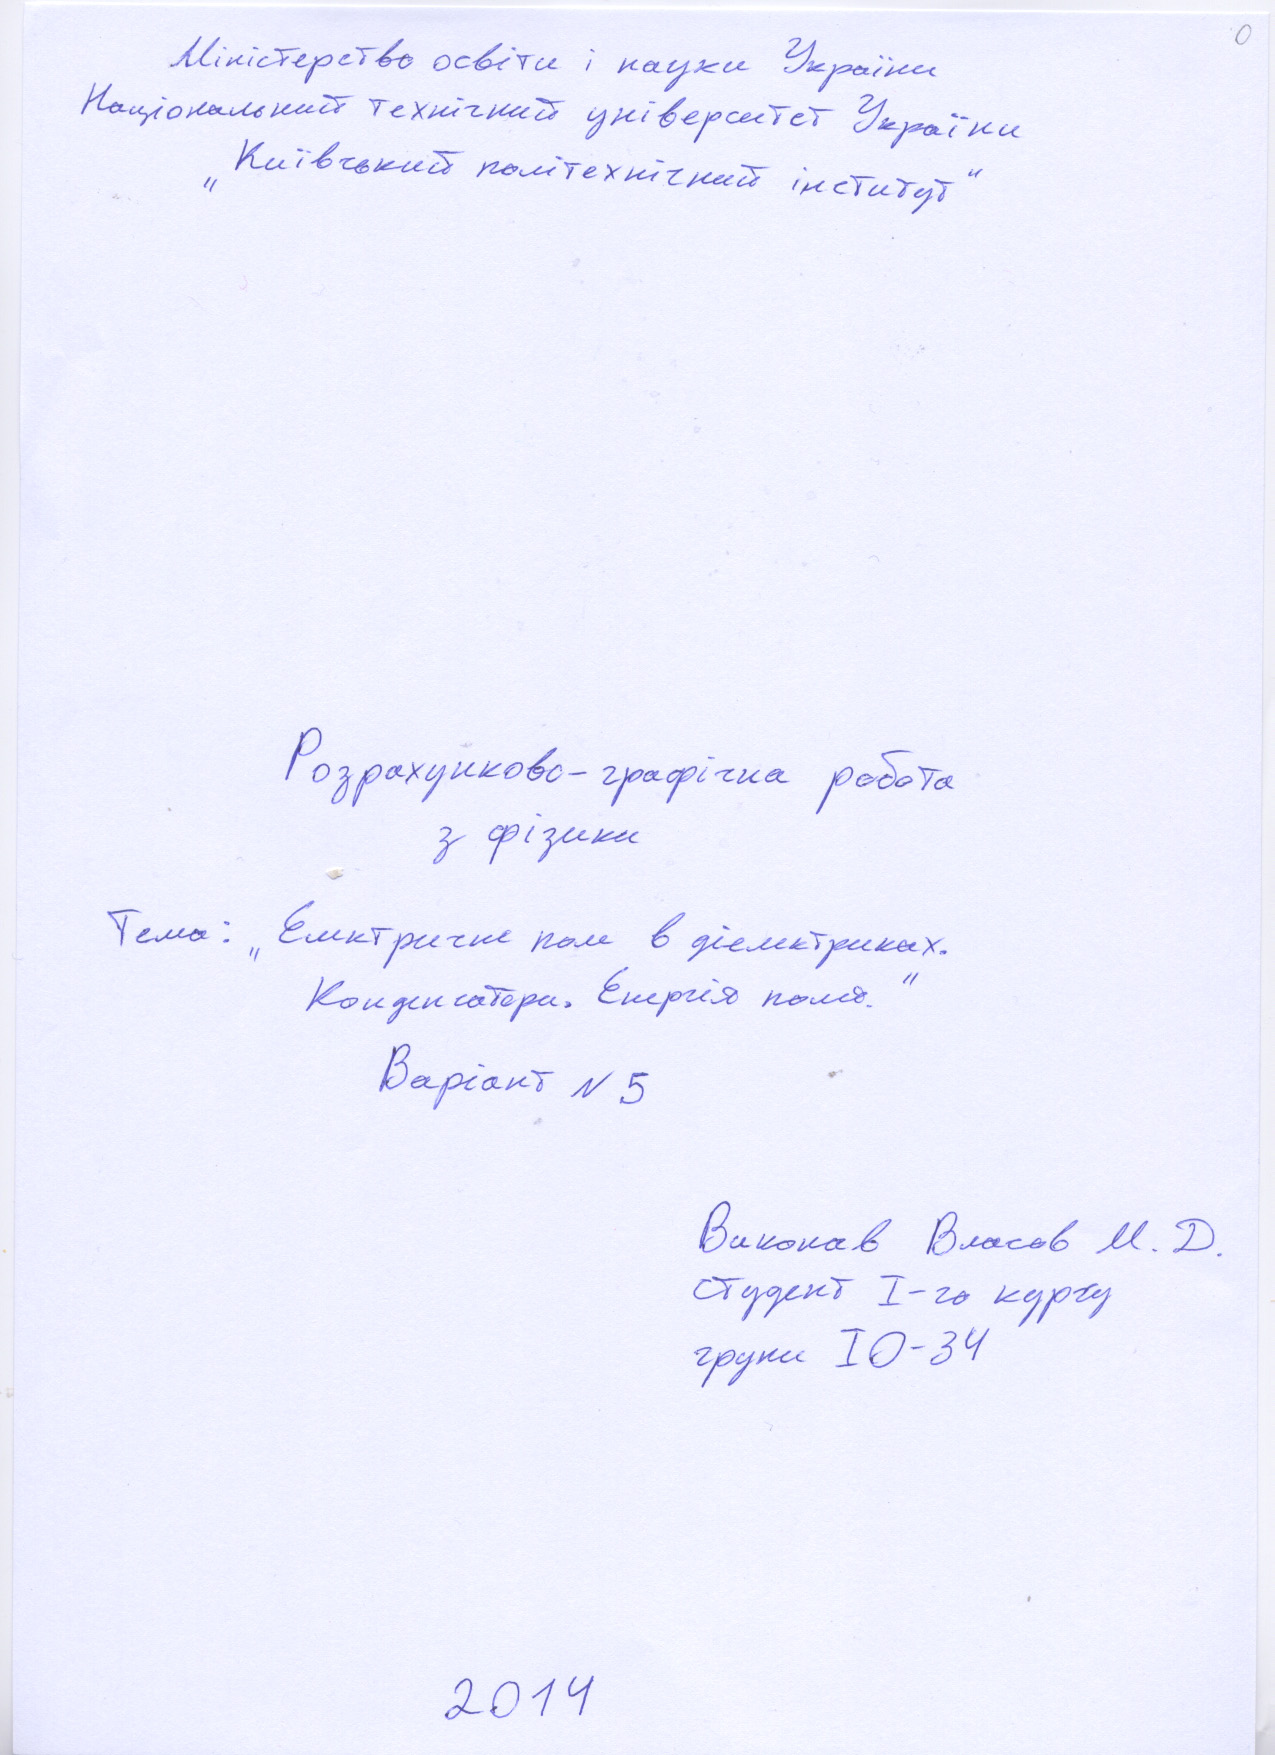 0
Міністерство освіти і науки України
Національний технічний університет України
„Київський політехнічний інститут“
Розрахунково-графічна робота
з фізики
Тема: „Електричне поле в діелектриках.
Конденсатори. Енергія поля.”
Варіант N5
Виконав Власов М. Д.
студент I-го курсу
групи IO-34
2014